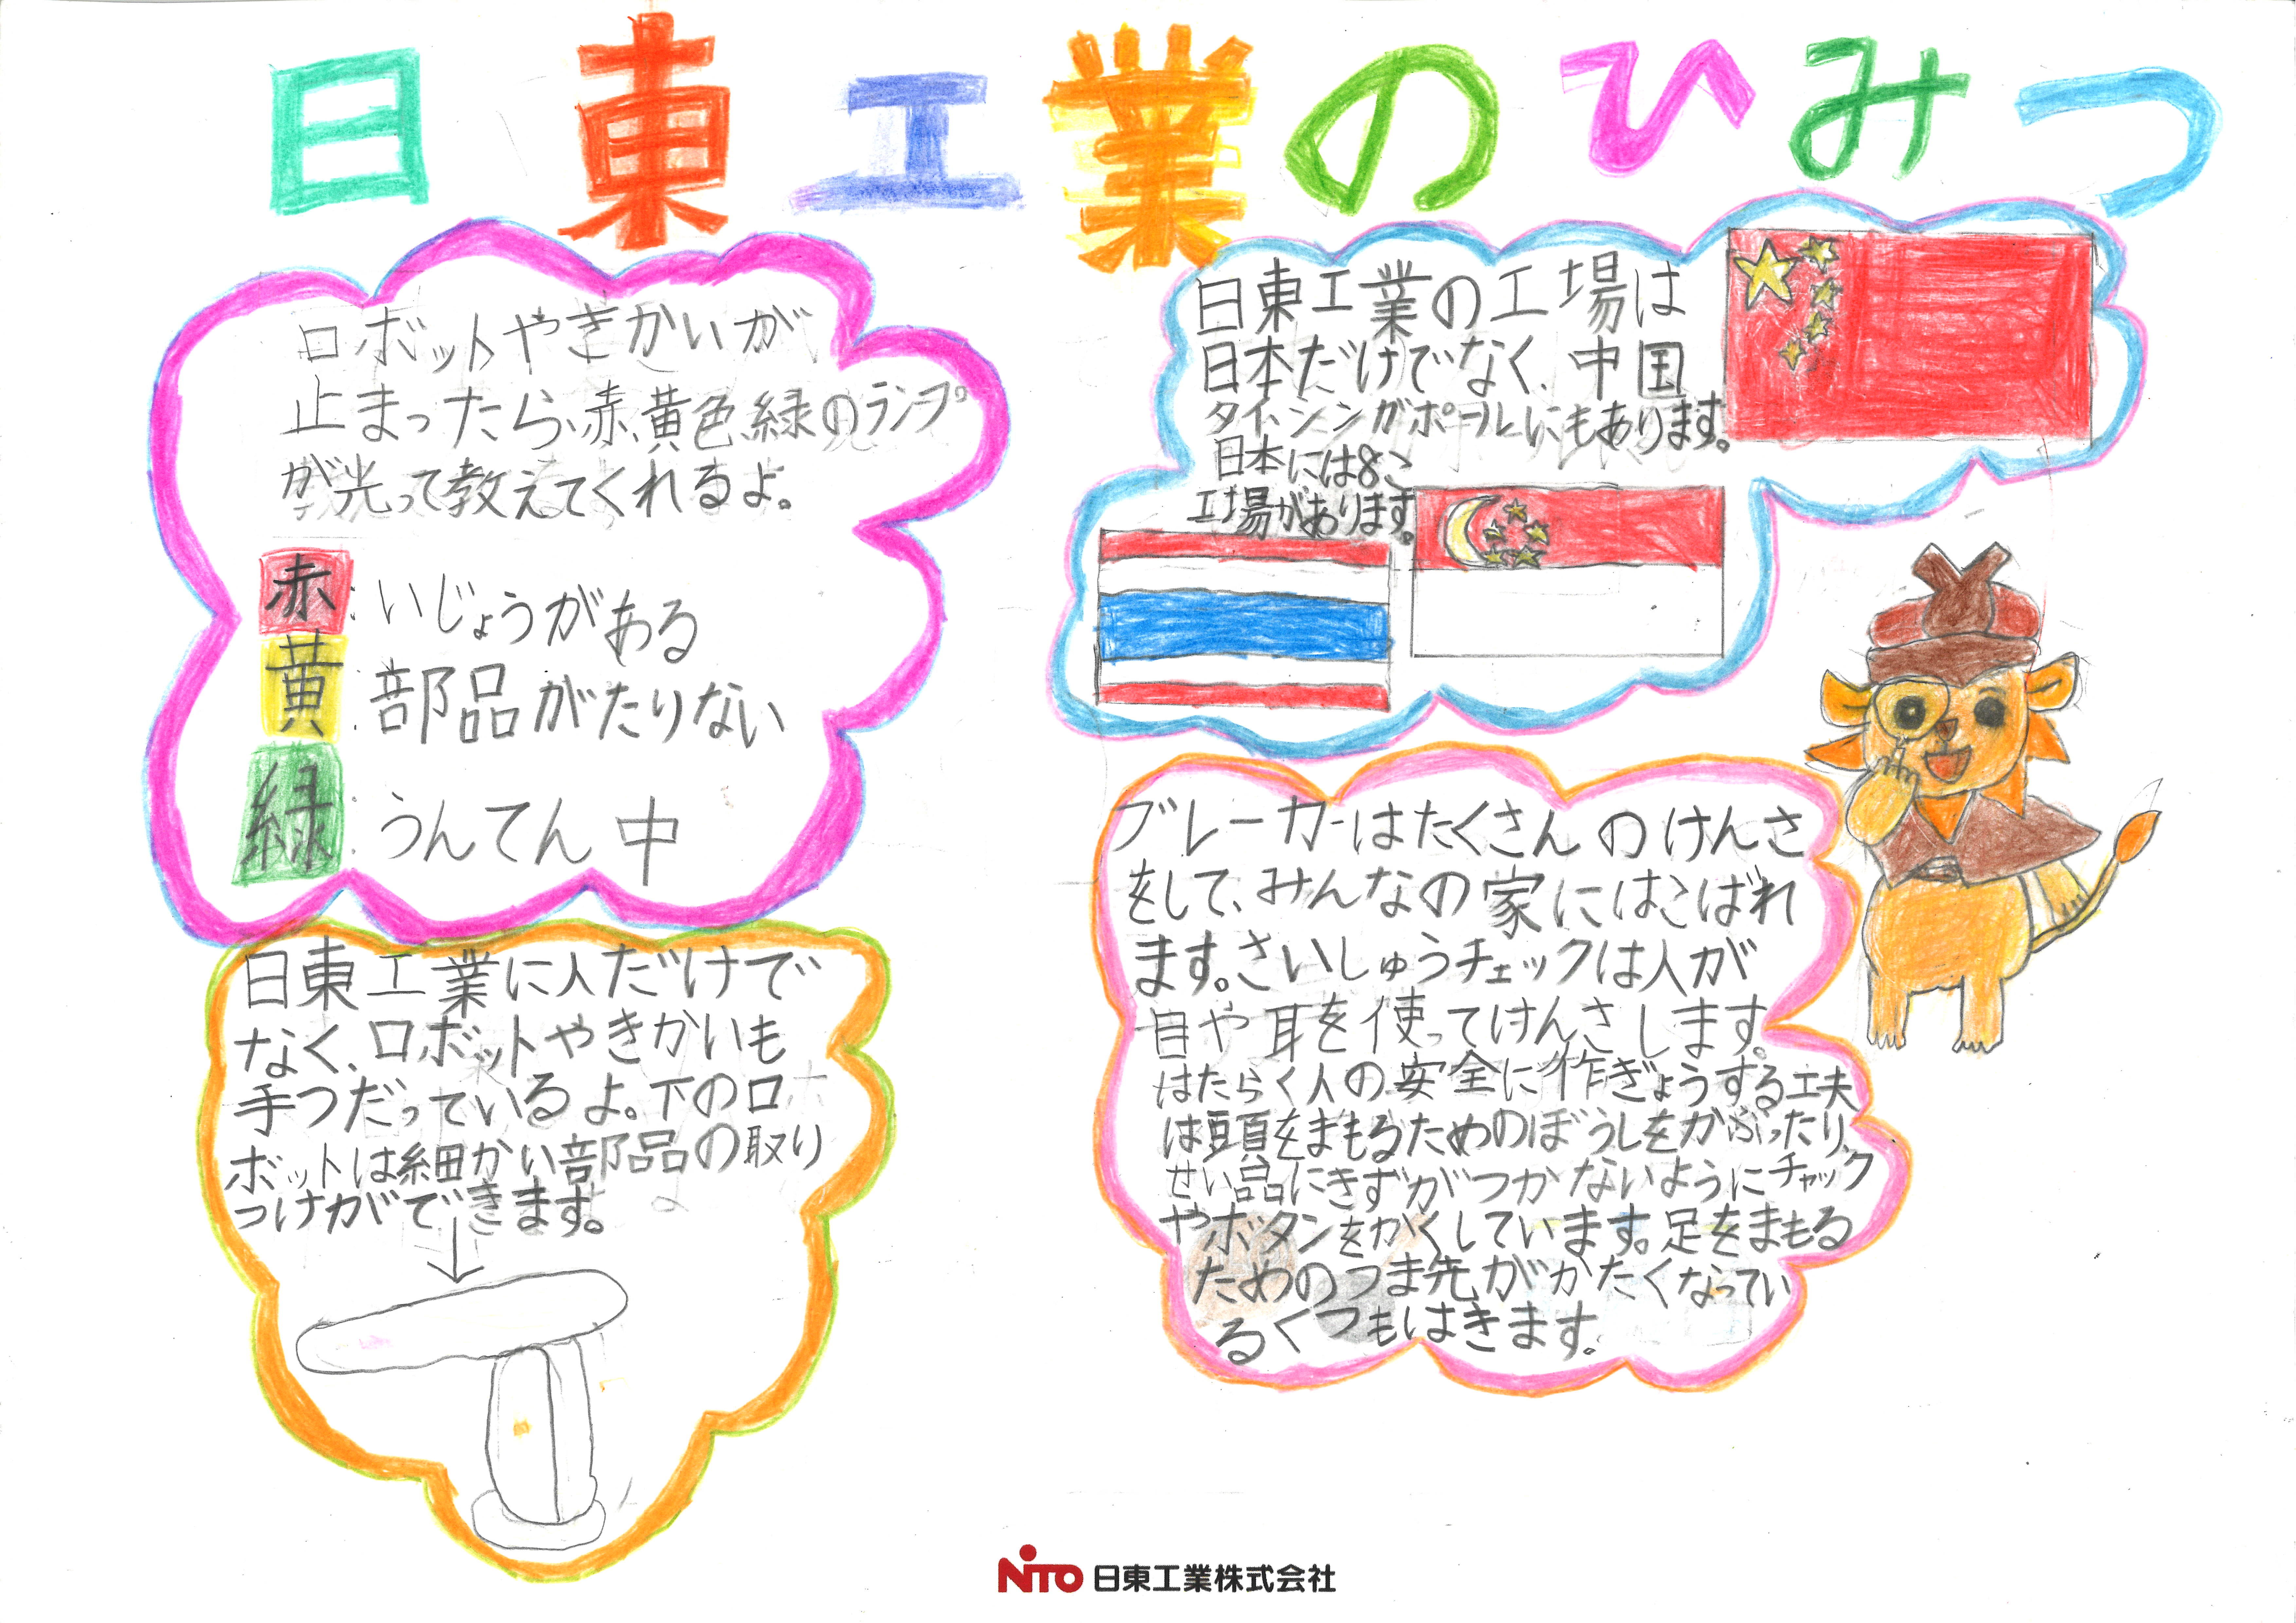 日東工業のひみつ
ロボットやきかいが
止まったら、赤、黄色、緑のランプ
が光って教えてくれるよ。
赤：いじょうがある
黄：部品がたりない
緑：うんてん中
日東工業に人だけで
なく、ロボットやきかいも
手つだっているよ。下のロ
ボットは細かい部品の取り
つけができます。
日東工業の工場は
日本だけでなく、中国
タイ、シンガポールにもあります。
日本には8こ
工場があります。
ブレーカーはたくさんのけんさ
をして、みんなの家にはこばれ
ます。さいしゅうチェックは人が
目や耳を使ってけんさします。
はたらく人の安全に作ぎょうする工夫
は頭をまもるためのぼうしをかぶったり、
せい品にきずがつかないようにチャック
やボタンをかくしています。足をまもる
ためのつま先がかたくなってい
るくつもはきます。
NITO 日東工業株式会社